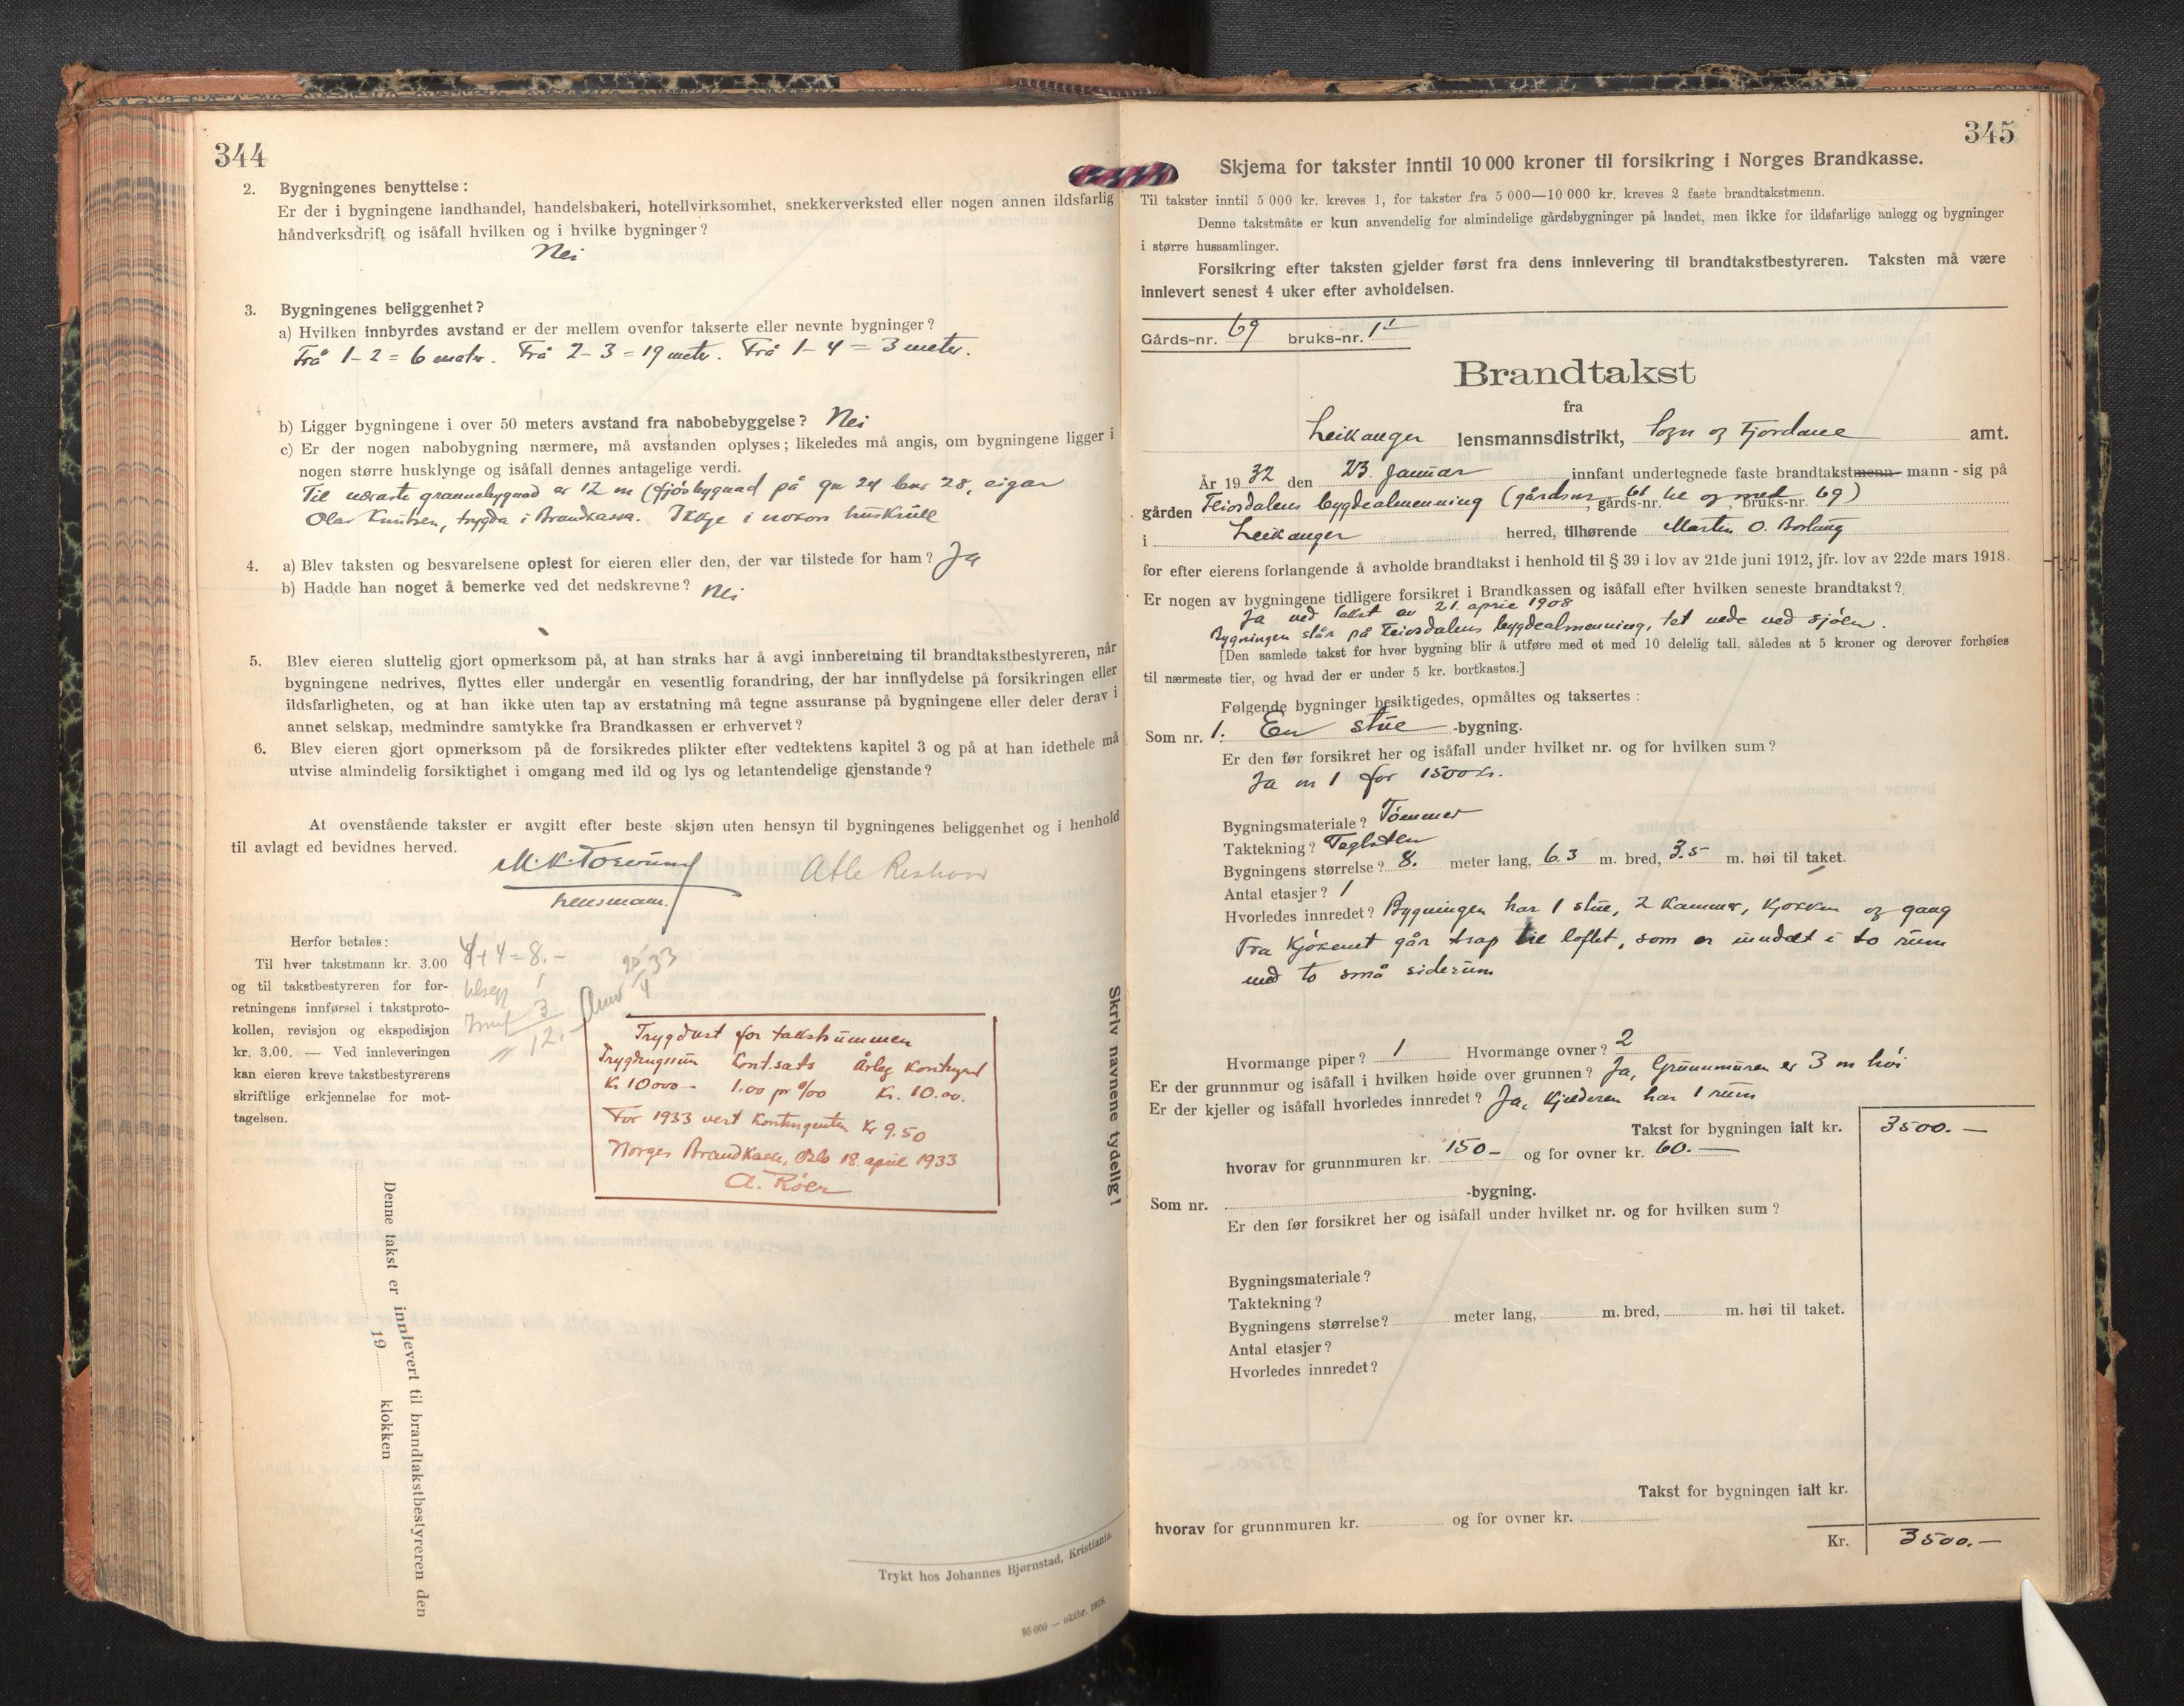 344
2. Bygningenes benyttelse:
Er der i bygningene landhandel, handelsbakeri, hotellvirksomhet, snekkerverksted eller nogen annen ildsfarlig
håndverksdrift og isåfall hvilken og i hvilke bygninger?
Nei
3. Bygningenes beliggenhet?
a) Hvilken innbyrdes avstand er der mellem ovenfor takserte eller nevnte bygninger?
Frå 1–2 = 6 meter. Frå 2–3 = 19 meter. Frå 1–4 = 3 meter.
b) Ligger bygningene i over 50 meters avstand fra nabobebyggelse? Nei
c) Er der nogen nabobygning nærmere, må avstanden oplyses; likeledes må angis, om bygningene ligger i
nogen større husklynge og isåfall dennes antagelige verdi.
Til næraste grannebygnad er 12 m (fjósbygnad på gn 24 bnr 28, eigar
Olav Knutsen, trygda i Brandkassa. Ikkje i nokon huskrull
4. a) Blev taksten og besvarelsene oplest for eieren eller den, der var tilstede for ham? Ja
b) Hadde han noget å bemerke ved det nedskrevne? Nei
5. Blev eieren sluttelig gjort opmerksom på, at han straks har å avgi innberetning til brandtakstbestyreren, når
bygningene nedrives, flyttes eller undergår en vesentlig forandring, der har innflydelse på forsikringen eller
ildsfarligheten, og at han ikke uten tap av erstatning må tegne assuranse på bygningene eller deler derav i
annet selskap, medmindre samtykke fra Brandkassen er erhvervet?
6. Blev eieren gjort opmerksom på de forsikredes plikter efter vedtektens kapitel 3 og på at han idethele må
utvise almindelig forsiktighet i omgang med ild og lys og letantendelige gjenstande?
At ovenstående takster er avgitt efter beste skjøn uten hensyn til bygningenes beliggenhet og i henhold
til avlagt ed bevidnes herved.
lensmann.
Herfor betales:
Til hver takstmann kr. 3.00
og til takstbestyreren for for-
retningens innførsel i takstproto-
kollen, revisjon og ekspedisjon
kr. 3.00. — Ved innleveringen
kan eieren kreve takstbestyrerens
skriftlige erkjennelse for mot-
tagelsen.
4+4=8.-
3
12.-
Trygdast for takstsummen
Trygdingssum Kont.sats Årleg Kontingent
Kr. 10000- 1.00 pr ‰ Kr. 10.00.
For 1933 vert Kontingenten Kr 9.50
Norges Brandkasse, Oslo 18. april 1933
A. Röer
Skriv navnene tydelig!
Denne takst er innlevert til brandtakstbestyreren den
19 klokken
Trykt hos Johannes Bjørnstad, Kristiania.
50 000 — oktbr. 1918.
345
Skjema for takster inntil 10 000 kroner til forsikring i Norges Brandkasse.
Til takster inntil 5 000 kr. kreves 1, for takster fra 5 000—10 000 kr. kreves 2 faste brandtakstmenn.
Denne takstmåte er kun anvendelig for almindelige gårdsbygninger på landet, men ikke for ildsfarlige anlegg og bygninger
i større hussamlinger.
Forsikring efter taksten gjelder først fra dens innlevering til brandtakstbestyreren. Taksten må være
innlevert senest 4 uker efter avholdelsen.
Gårds-nr. 69 bruks-nr. 1
Brandtakst
fra
Leikanger lensmannsdistrikt, Sogn og Fjordane amt.
År 1932 den 23 Januar innfant undertegnede faste brandtakstmenn - mann - sig på
gården Feiosdalens bygdealmenning (gårdsnr, gårds-nr. 66 til og med, bruks-nr. 69)
i Leikanger herred, tilhørende Martin O. Borlaug
for efter eierens forlangende å avholde brandtakst i henhold til § 39 i lov av 21de juni 1912, jfr. lov av 22de mars 1918.
Er nogen av bygningene tidligere forsikret i Brandkassen og isåfall efter hvilken seneste brandtakst?
Ja ved takst av 21. april 1908
Bygningen står på Feiosdalens bygdealmenning, tet nede ved sjóen.
[Den samlede takst for hver bygning blir å utføre med et med 10 delelig tall, således at 5 kroner og derover forhøies
til nærmeste tier, og hvad der er under 5 kr. bortkastes.]
Følgende bygninger besiktigedes, opmåltes og taksertes:
Som nr. 1. En stue -bygning.
Er den før forsikret her og isåfall under hvilket nr. og for hvilken sum?
Ja nr 1 for 1500 kr.
Bygningsmateriale? Tömmer
Taktekning? Teglsten
Bygningens størrelse? 8. meter lang, 6.3 m. bred, 3.5 m. høi til taket.
Antal etasjer? 1
Hvorledes innredet? Bygningen har 1 stue, 2 kammer, kjøkken og gang
Fra kjókenet går trap til loftet, som er inndelt i to rum
med to små siderum
Hvormange piper? 1 Hvormange ovner? 2
Er der grunnmur og isåfall i hvilken høide over grunnen? Ja, Grunnmuren er 3 m høi
Er der kjeller og isåfall hvorledes innredet? Ja, Kjelderen har 1 rum
Takst for bygningen ialt kr. 3500.—
hvorav for grunnmuren kr. 150- og for ovner kr. 60.—
Som nr. -bygning.
Er den før forsikret her og isåfall under hvilket nr. og for hvilken sum?
Bygningsmateriale?
Taktekning?
Bygningens størrelse? meter lang, m. bred, m. høi til taket.
Antal etasjer?
Hvorledes innredet?
Takst for bygningen ialt kr.
hvorav for grunnmuren kr. og for ovner kr.
Kr. 3500.—